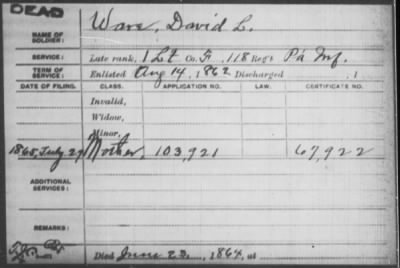 DEAD
NAME OF SOLDIER: Ware, David L.
SERVICE: Late rank, 1 Lt Co. F, 118 Regt Pa Inf.
TERM OF SERVICE: Enlisted Aug 14, 1862 Discharged , 1
DATE OF FILING. CLASS. APPLICATION NO. LAW. CERTIFICATE NO.
Invalid,
Widow,
Minor,
1865, July 29 Mother, 103,921 67,922
ADDITIONAL SERVICES:
REMARKS:
Died June 23, 1864, at